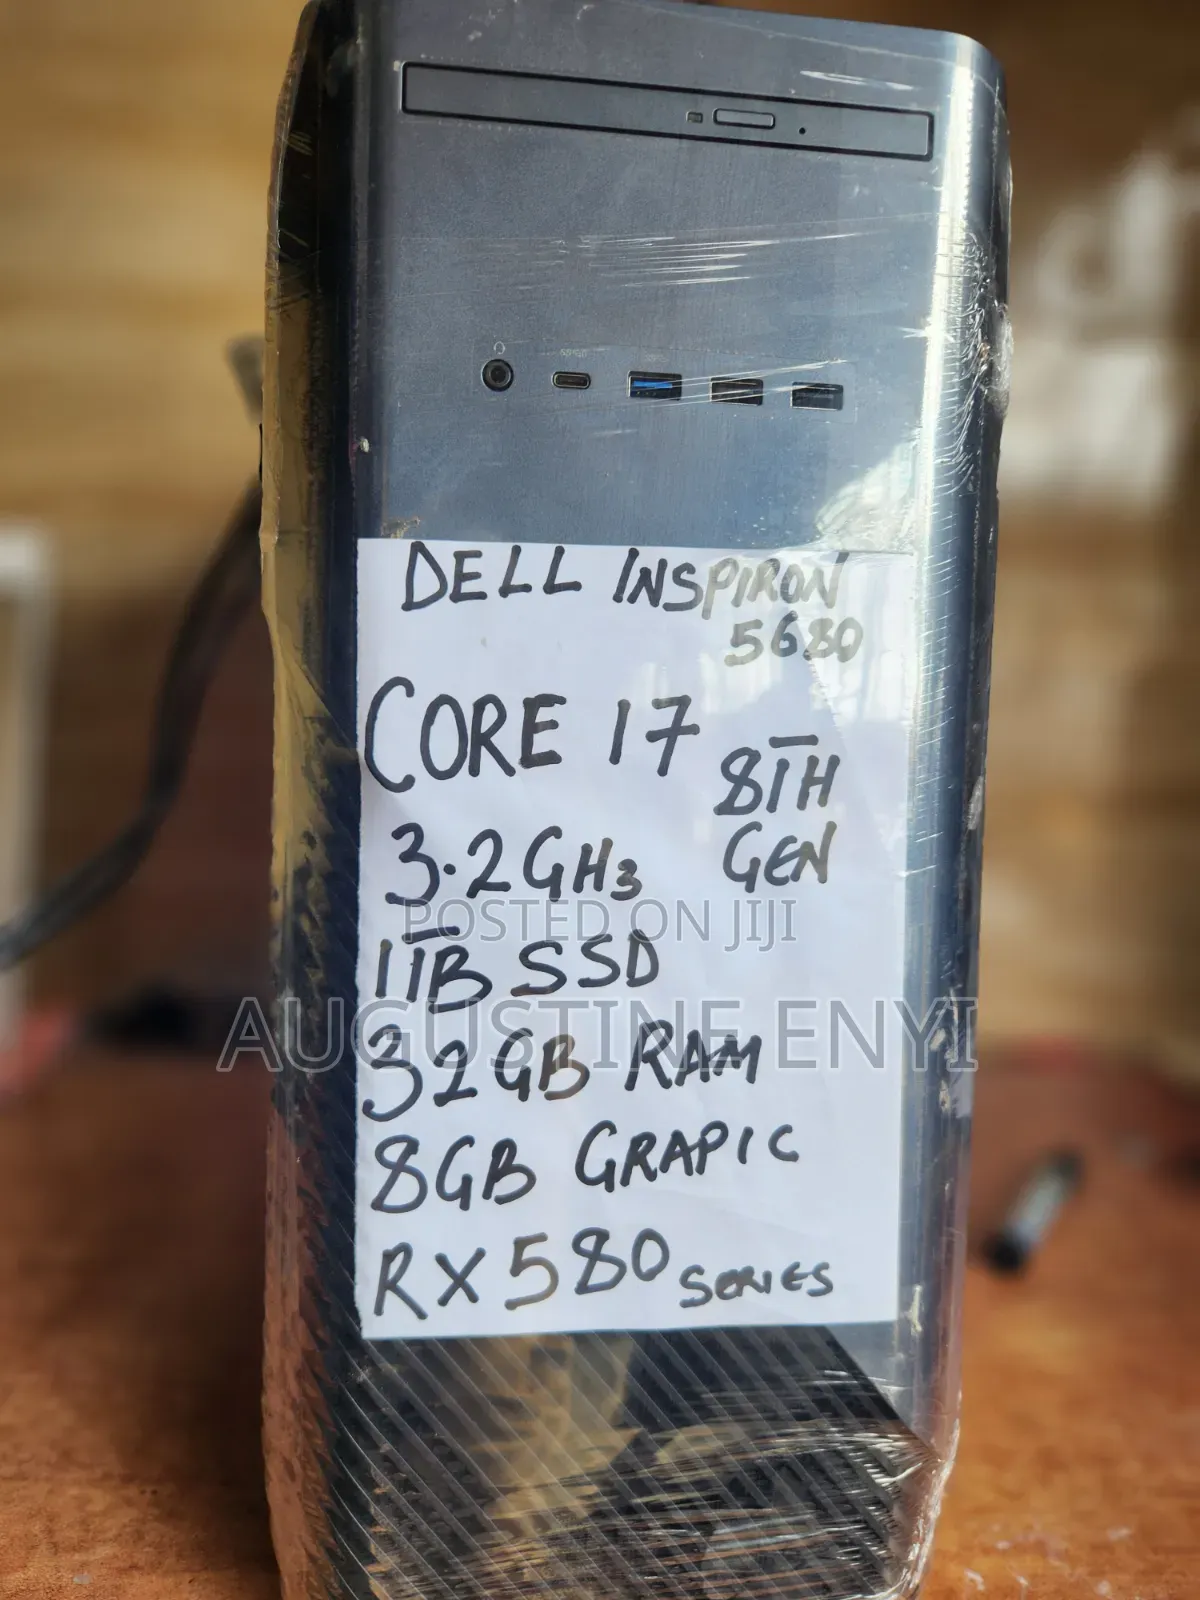 DELL INSPIRON
5680
CORE i7
8TH
GEN
3.2GHz
POSTED ON JIJI
1TB SSD
AUGUSTINE ENYI
32GB RAM
8GB GRAPIC
RX580 SERIES